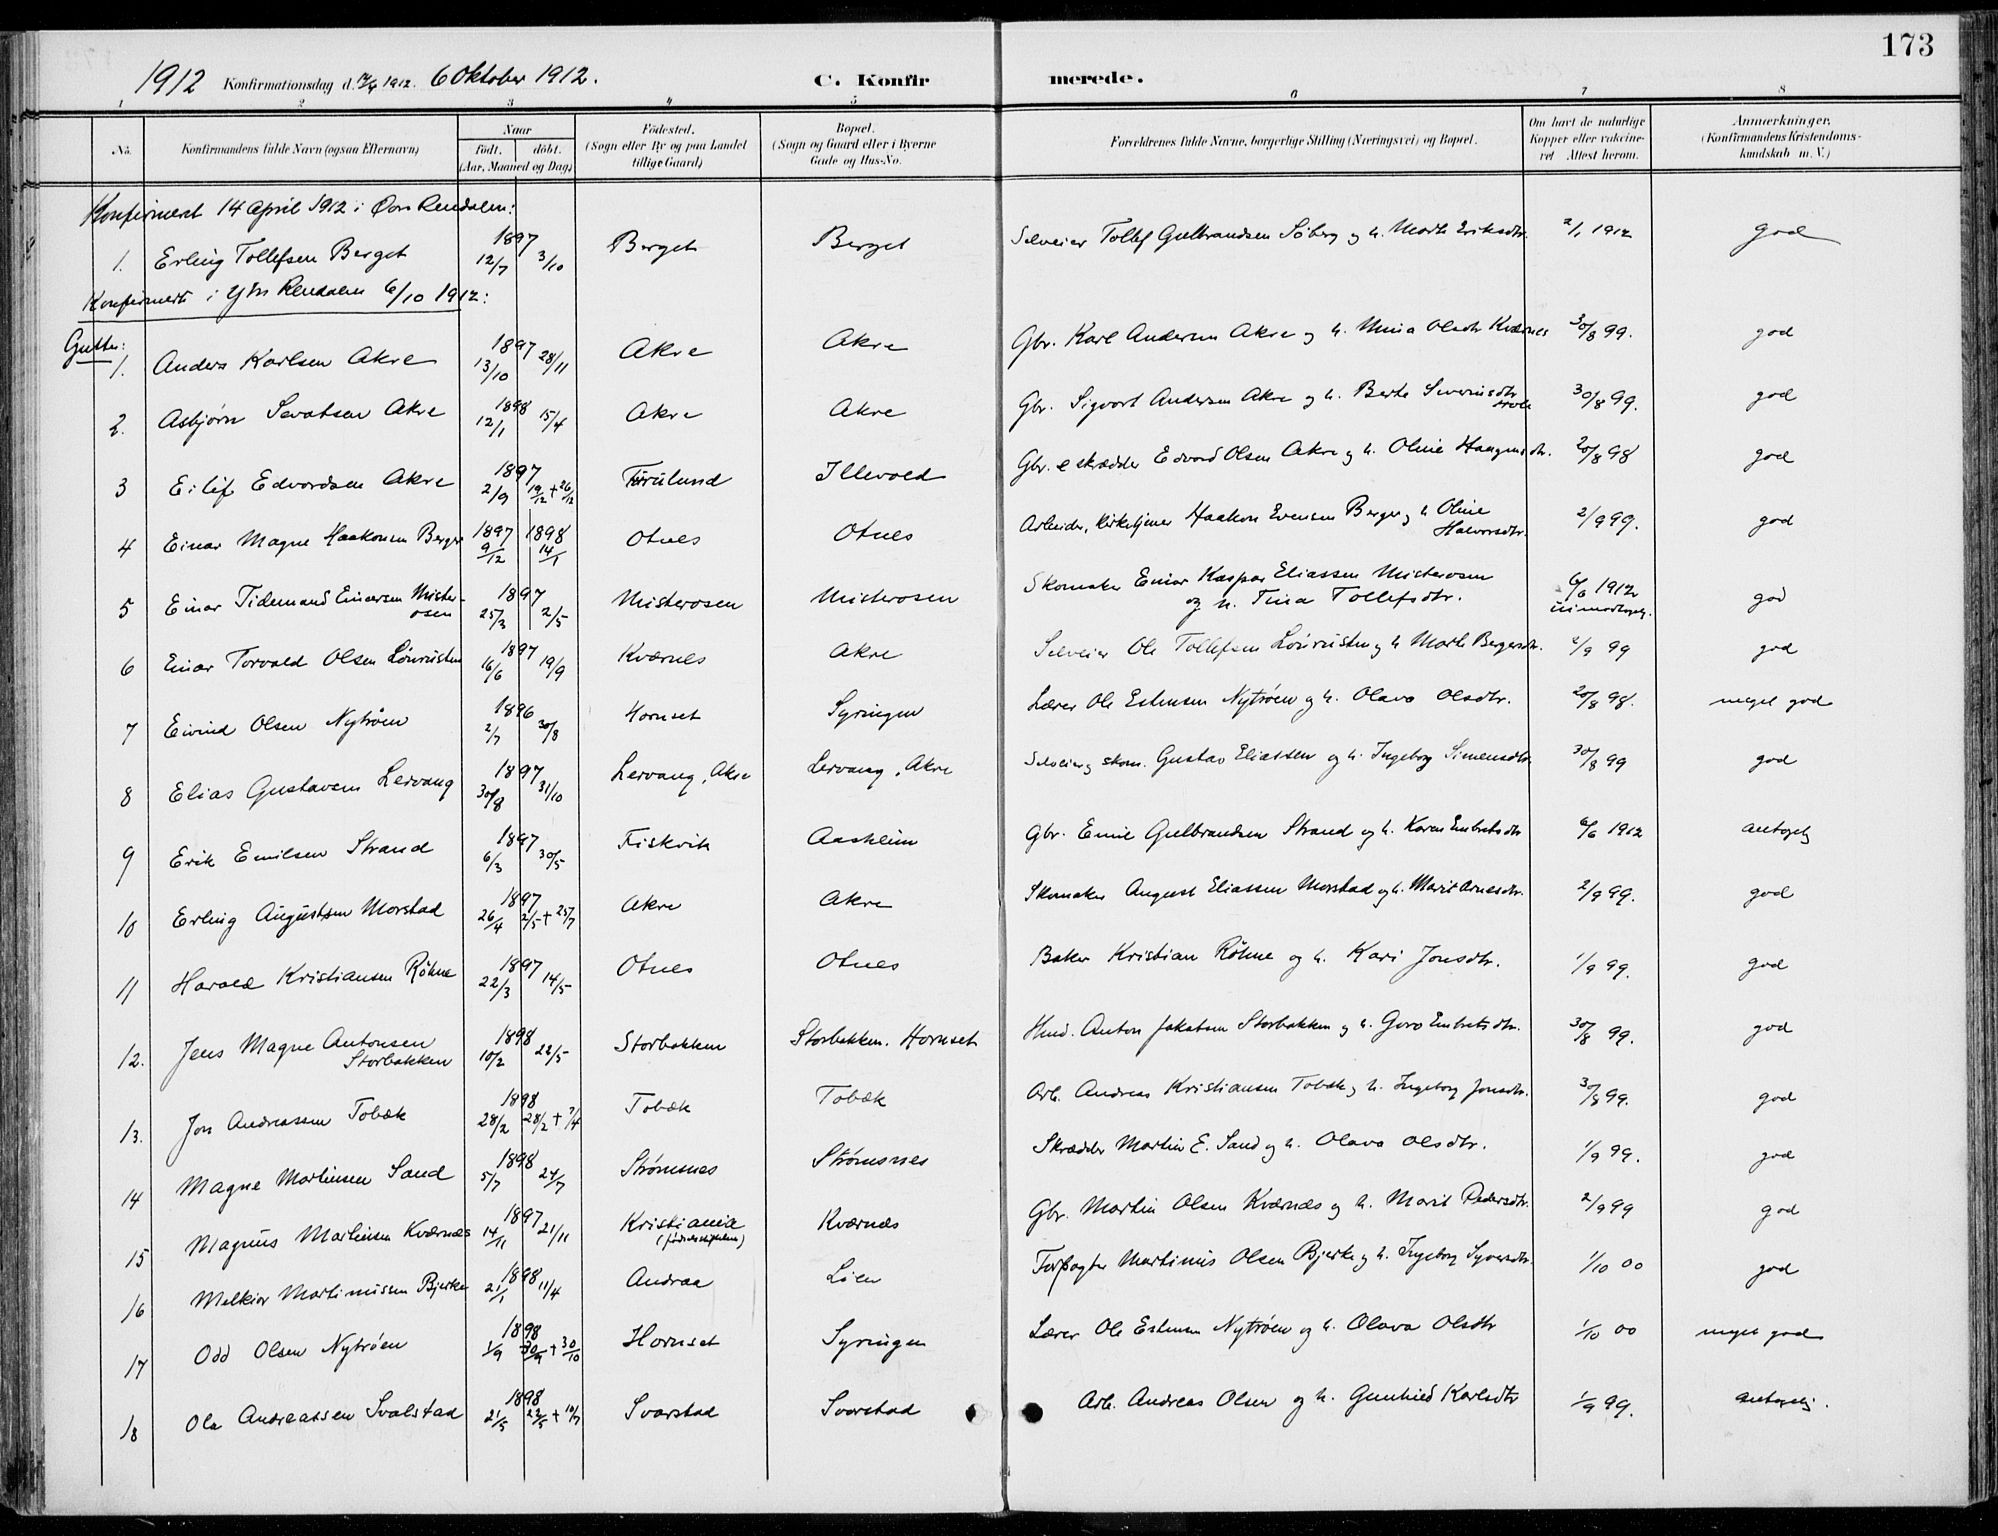 173
1912 Konfirmationsdag d. 14/4 1912. 6 Oktober 1912. C. Konfirmerede.
1 2 3 4 5 6 7 8
No. Konfirmandens fulde Navn (ogsaa Efternavn) Naar født. døbt. (Aar, Maaned og Dag) Födested. (Sogn eller By og paa Landet tillige Gaard) Bopæl. (Sogn og Gaard eller i Byerne Gade og Hus-No. Forældrenes fulde Navne, borgerlige Stilling (Næringsvei) og Bopæl. Om havt de naturlige Kopper eller vaccineret Attest herom. Anmærkninger. (Konfirmandens Kristendomskundskab m. V.)
Konfirmert 14 april 1912 i Øvre Rendalen:
1. Erling Tollefsen Berget 1897 12/7 3/10 Berget Berget Selveier Tollef Gulbrandsen Söberg og h. Marte Eriksdtr. 2/1 1912 god
Konfirmert i Ytre Rendalen 6/10 1912:
Gutter:
1. Anders Karlsen Akre 1897 13/10 28/11 Akre Akre Gbr. Karl Andersen Akre og h. Mina Olsdtr Kværnes 30/8 99. god
2. Asbjørn Sevatsen Akre 1898 12/1 15/4 Akre Akre Gbr. Sigvart Andersen Akre og h. Berte Severinsdtr 30/8 99. god
3 Eilif Edvardsen Akre 1897 2/9 19/12 + 26/12 Furulund Illevold Gbr. e skrædder Edvard Olsen Akre og h. Oline Haagensdtr. 20/8 98 god
4 Einar Magne Haakonsen Berger 1897 9/12 1898 14/1 Otnes Otnes Arbeider, Kirketjener Haakon Evensen Berger og h Oline Halvorsdtr. 2/9 99. god
5 Einar Tidemand Einarsen Misterosen 1897 25/3 2/5 Misterosen Misterosen Skomaker Einar Kaspar Eliassen Misterosen og h. Tina Tollefsdtr. 6/6 1912 god
6 Einar Torvald Olsen Lönrusten 1897 16/6 19/9 Kværnes Akre Selveier Ole Tollefsen Lönrusten og h Marte Bergersdtr. 2/9 99 god
7 Eivind Olsen Nytrøen 1896 2/7 30/8 Hornset Syringen Lærer Ole Estensen Nytrøen og h. Olava Olsdtr. 20/8 98. meget god
8 Elias Gustavsen Lervang 1897 30/8 31/10 Lervang, Akre Lervang, Akre Selveier og skom. Gustav Eliassen og h. Ingeborg Simensdtr 30/8 99 god
9 Erik Emilsen Strand 1897 6/3 30/5 Fiskvik Aasheim Gbr. Emil Gulbrandsen Strand og h. Karen Embretsdtr 6/6 1912 antagelig
10 Erling Augustsen Morstad 1897 26/4 2/5 + 25/7 Akre Akre Skomaker August Eliassen Morstad og h. Marit Arnesdtr. 2/9 99. god
11 Harald Kristiansen Röhne 1897 22/3 14/5 Otnes Otnes Baker Kristian Röhne og h. Kari Jonsdtr. 1/9 99. god
12. Jens Magne Antonsen Storbakken 1898 10/2 22/5 Storbakken Storbakken. Hornset Hmd. Anton Jakobsen Storbakken og h. Goro Embretsdtr. 30/8 99. god
13. Jon Andreassen Tobæk 1898 28/2 28/2 + 7/4 Tobæk Tobæk Arb. Andreas Kristiansen Tobæk og h. Ingeborg Jonsdtr. 30/8 99. god
14 Magne Martinsen Sand 1898 5/7 24/7 Strømsnes Strømsnes Skrædder Martin E. Sand og h. Olava Olsdtr. 1/9 99. god
15 Magnus Martinsen Kværnes 1897 14/11 21/11 Kristiania (fødselsstiftelsen) Kværnæs Gbr. Martin Olsen Kværnæs og h. Marit Pedersdtr. 2/9 99 god
16 Melkior Martinussen Bjerke 1898 21/1 11/4 Andraa Löen Forpagter Martinus Olsen Bjerke og h. Ingeborg Syversdtr. 1/10 00 god
17 Odd Olsen Nytrøen 1898 1/9 30/9 + 30/10 Hornset Syringen Lærer Ole Estensen Nytrøen og h. Olava Olsdtr 1/10 00 meget god
18 Ola Andreassen Svalstad 1898 21/5 22/5 + 10/7 Svarstad Svarstad Arb. Andreas Olsen og h. Gunhild Karlsdtr 1/9 99. antagelig.